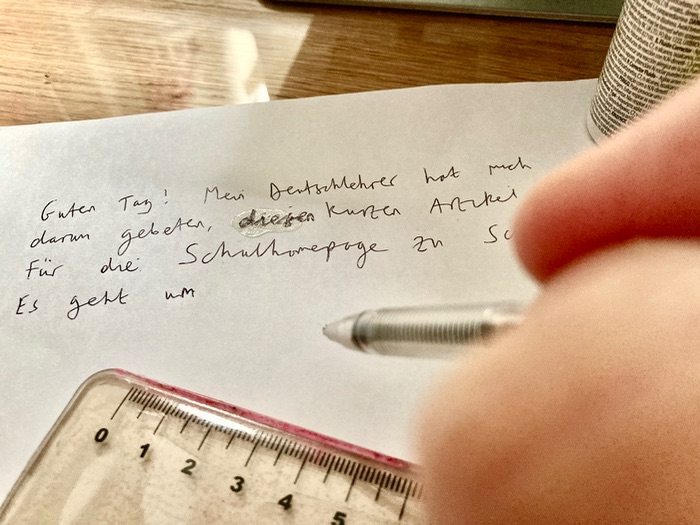 Guten Tag! Mein Deutschlehrer hat mich
darum gebeten, diesen kurzen Artikel
für die Schulhomepage zu
Es geht um
0 1 2 3 4 5